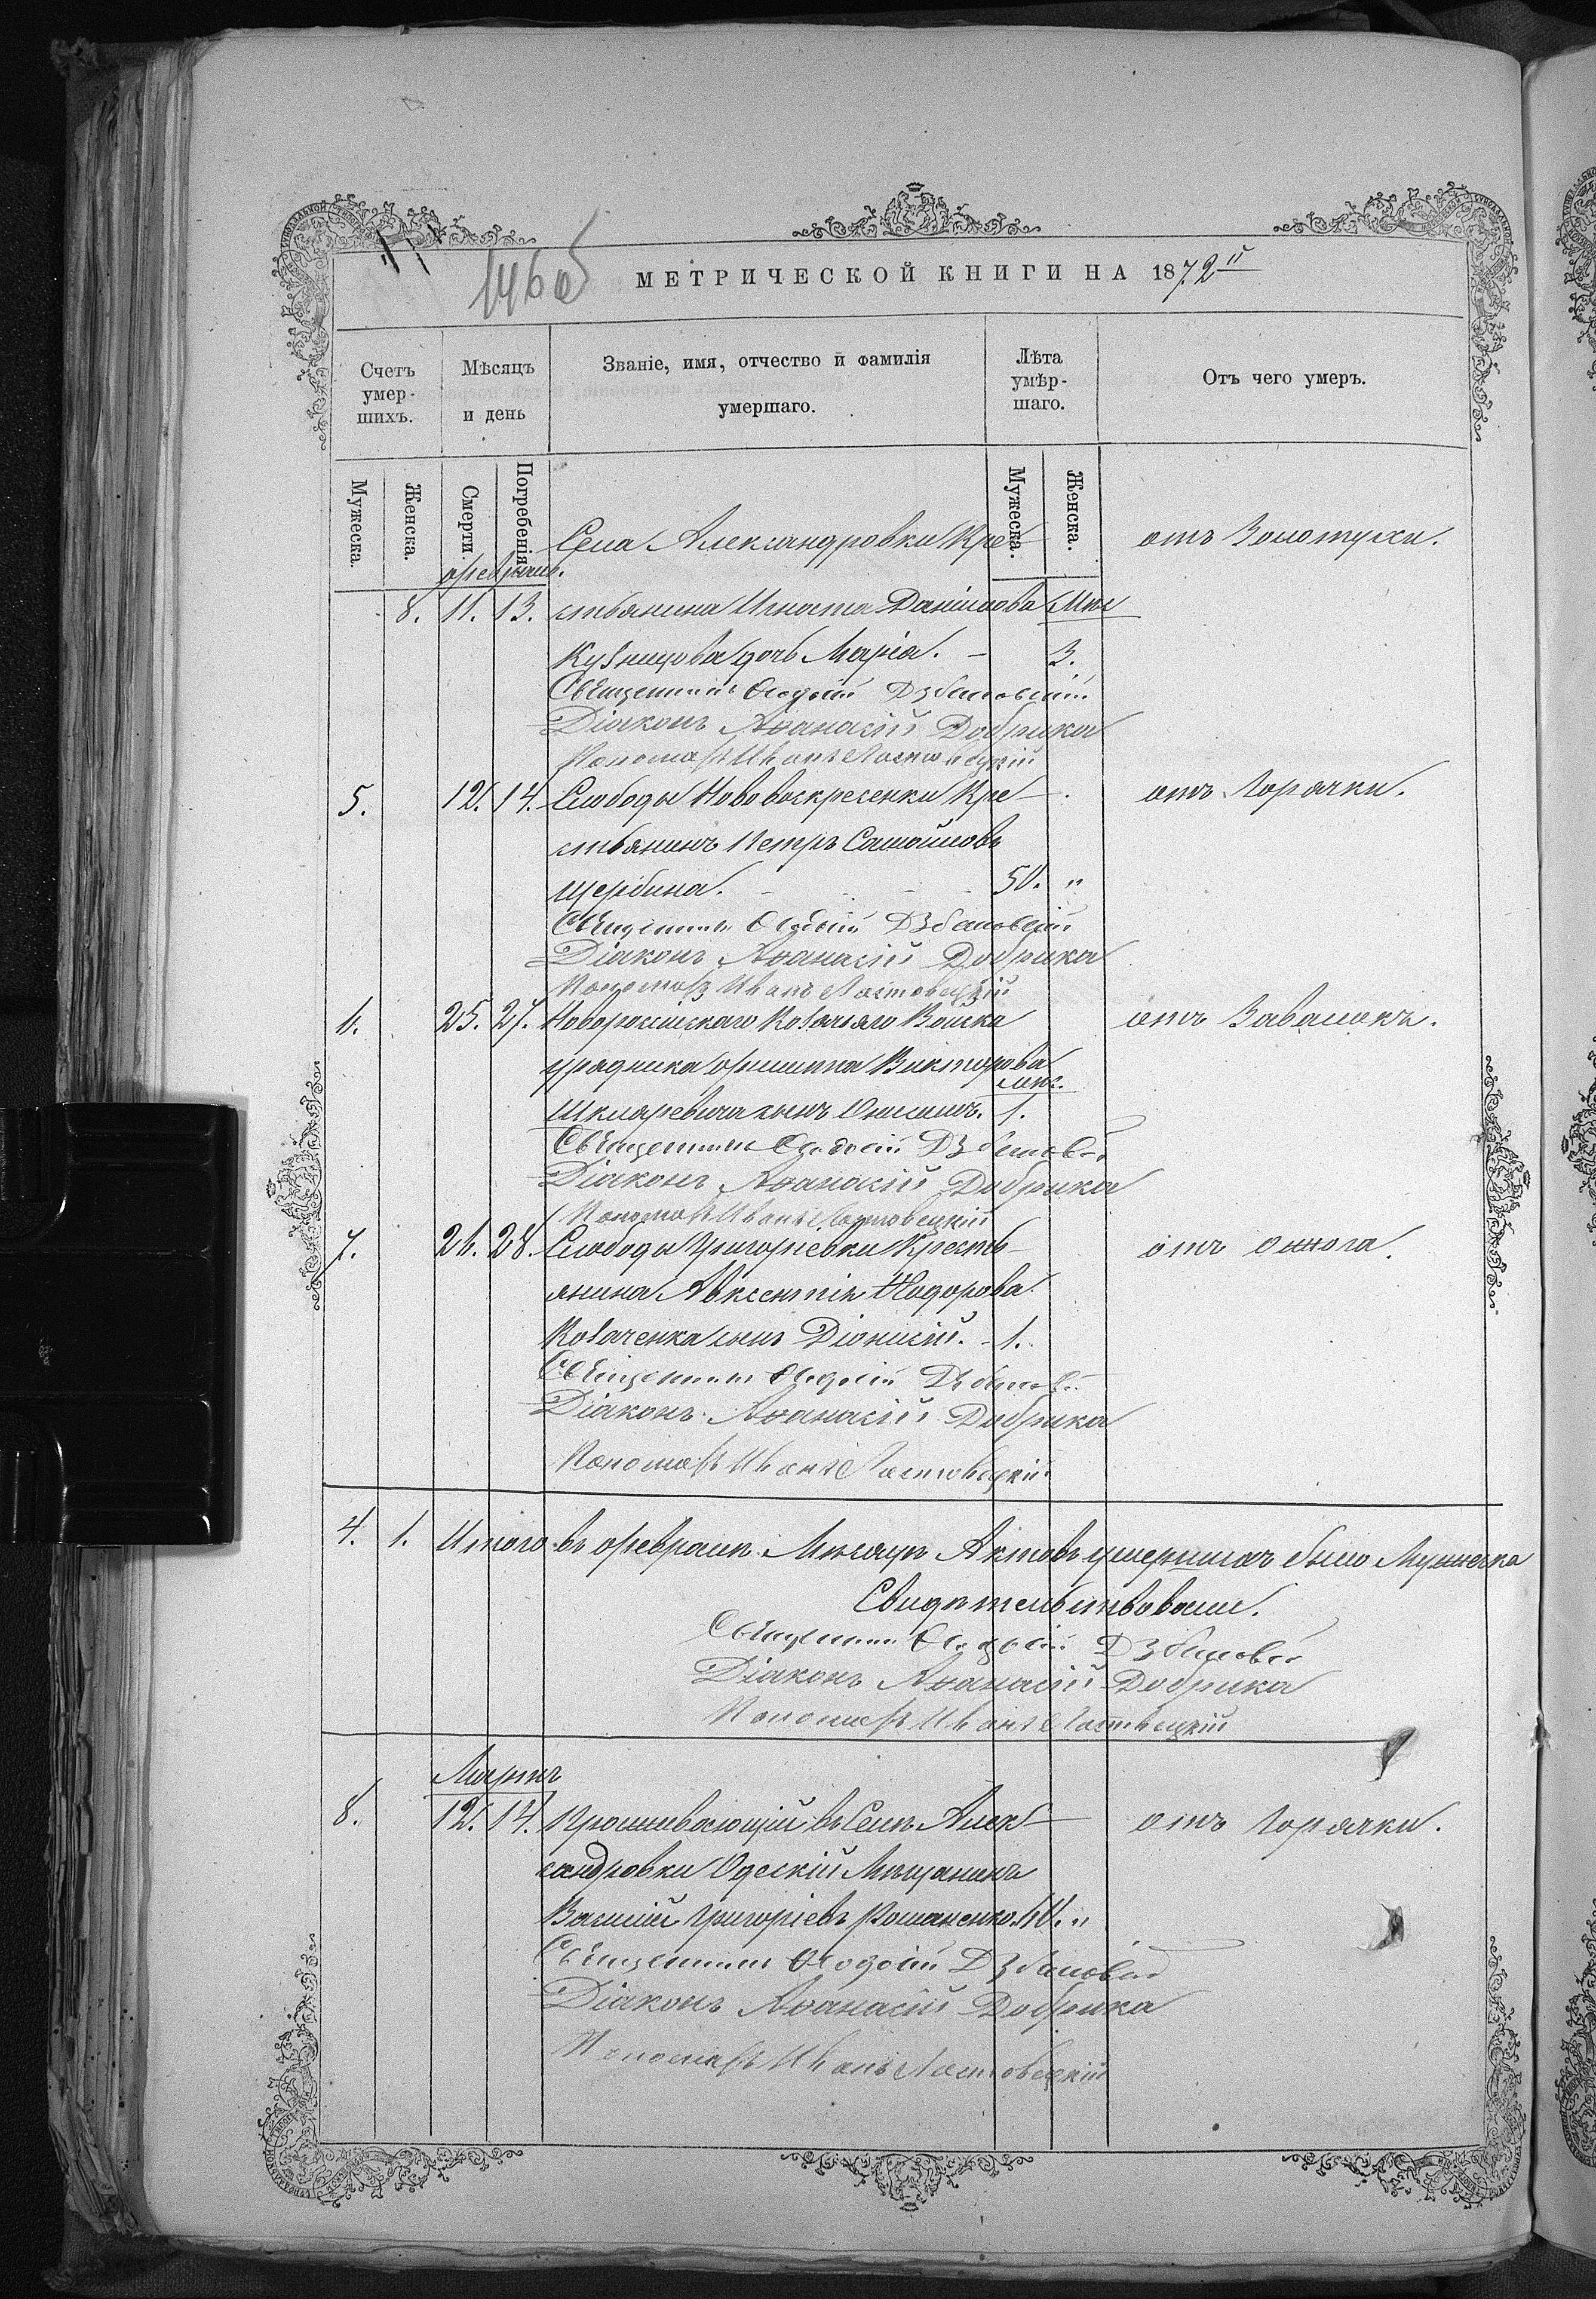 146 об
МЕТРИЧЕСКОЙ КНИГИ НА 1872й
Счетъ умер-шихъ.
Мѣсяцъ и день
Званіе, имя, отчество и фамилія умершаго.
Лѣта умѣр-шаго.
Отъ чего умеръ.
Мужеска.
Женска.
Смерти.
Погребенія.
Мужеска.
Женска.
Февраль.
Села Александровки Кре- отъ Золотухи.
8. 11. 13. стьянина Игната Даніилова Мѣс
Кузнецова дочь Марія. - 3.
Священникъ Ѳеодосій Дзбановскій
Діаконъ Аѳанасій Добрика
Пономарь Иванъ Ластовецкій
5. 12. 14. Слободы Нововоскресенки Кре- отъ Горячки.
стьянинъ Петръ Самойловъ
Щербина. - - - 50. "
Священникъ Ѳеодосій Дзбановскій
Діаконъ Аѳанасій Добрика
Пономарь Иванъ Ластовецкій
6. 25. 27. Новороссійскаго Козачьяго Войска отъ Завалокъ.
урядника Филиппа Викторова
мѣс.
Шкляревича сынъ 1.
Священникъ Ѳеодосій Дзбановскій
Діаконъ Аѳанасій Добрика
Пономарь Иванъ Ластовецкій
7. 26. 28. Слободы Григоріевки Кресть- отъ
янина Авксентія Ѳедорова
Козаченка сынъ Діонисій. - 1.
Священникъ Ѳеодосій Дзбановскій
Діаконъ Аѳанасій Добрика
Пономарь Иванъ Ластовецкій
4. 1. Итого въ февралѣ Мѣсяцѣ Актовъ умершихъ было
Свидѣтельствовали.
Священникъ Ѳеодосій Дзбановскій
Діаконъ Аѳанасій Добрика
Пономарь Иванъ Ластовецкій
Мартъ
8. 12. 14. Проживающій въ Селѣ Алек- отъ Горячки.
сандровки Одескій Мѣщанинъ
Василій Григоріевъ Романенко. "
Священникъ Ѳеодосій Дзбановскій
Діаконъ Аѳанасій Добрика
Пономарь Иванъ Ластовецкій